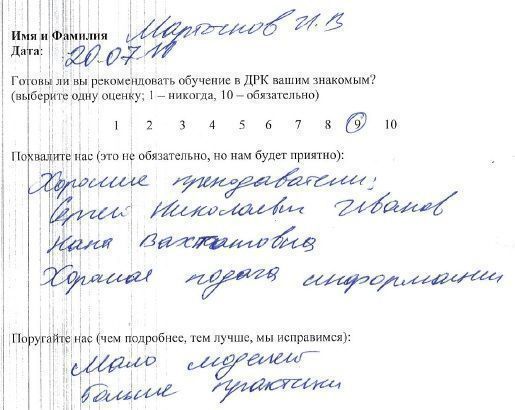 Имя и Фамилия Мартынов И.В
Дата: 20.07.11
Готовы ли вы рекомендовать обучение в ДРК вашим знакомым?
(выберите одну оценку; 1 – никогда, 10 – обязательно)
1 2 3 4 5 6 7 8 9 10
Похвалите нас (это не обязательно, но нам будет приятно):
Хорошие преподаватели:
Сергей Николаевич Иванов
Нана Вахтанговна
Хорошая подача информации
Поругайте нас (чем подробнее, тем лучше, мы исправимся):
Мало моделей
Больше практики